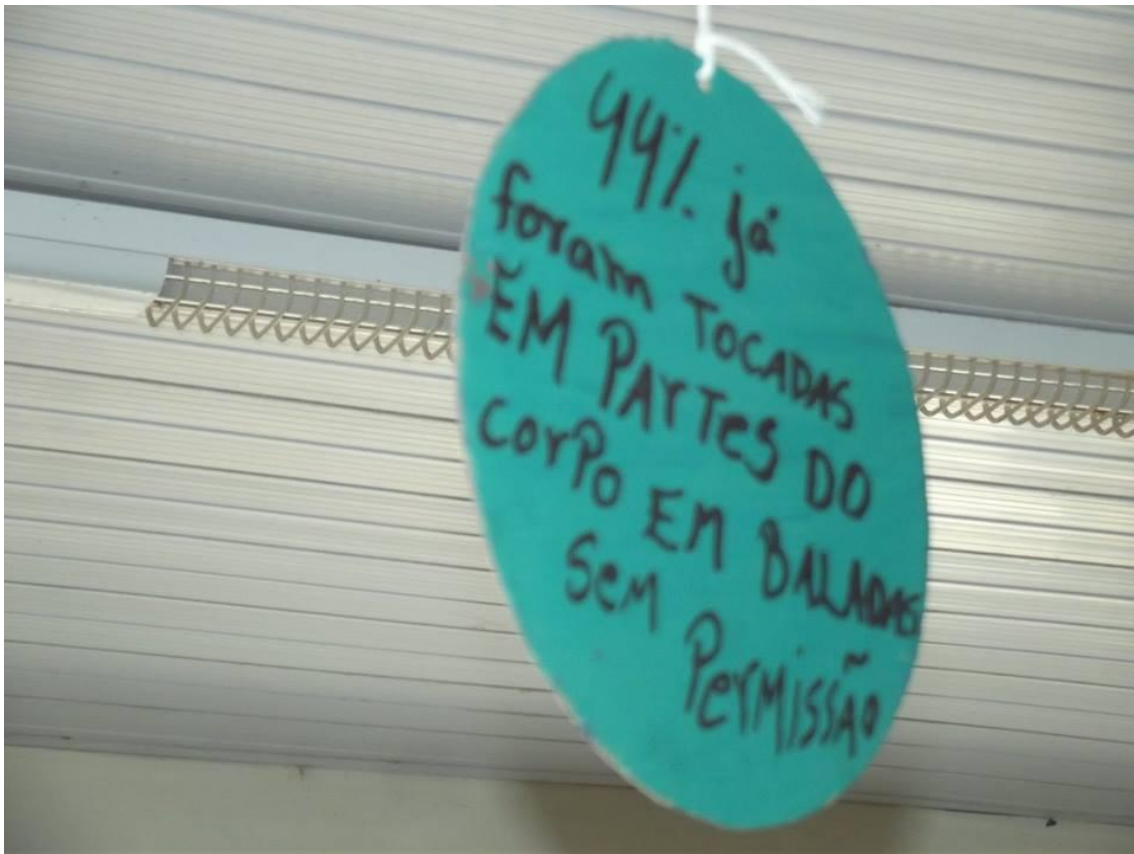 44% já
foram TOCADAS
EM PARTES DO
CORPO EM BALADAS
SEM
PERMISSÃO